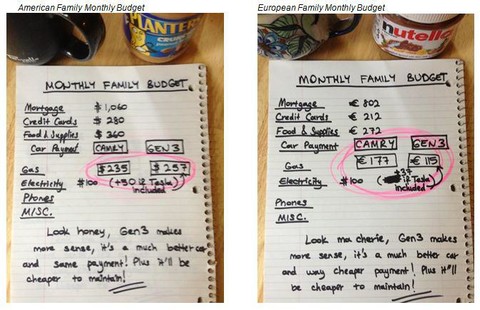 American Family Monthly Budget
PLANTERS
MONTHLY FAMILY BUDGET
Mortgage $ 1,060
Credit Cards $ 280
Food & Supplies $ 360
Car Payment CAMRY GEN 3
Gas $235 $257
Electricity $100 (+50 if Tesla)
included
Phones
MISC.
Look honey, Gen3 makes
more sense, it's a much better car
and same payment! Plus it'll be
cheaper to maintain!
European Family Monthly Budget
nutella
MONTHLY FAMILY BUDGET
Mortgage € 802
Credit Cards € 212
Food & Supplies € 272
Car Payment CAMRY GEN 3
Gas € 177 € 115
+37
Electricity $100 if Tesla
included
Phones
MISC.
Look ma cherie, Gen3 makes
more sense, it's a much better car
and way cheaper payment! Plus it'll
be cheaper to maintain!